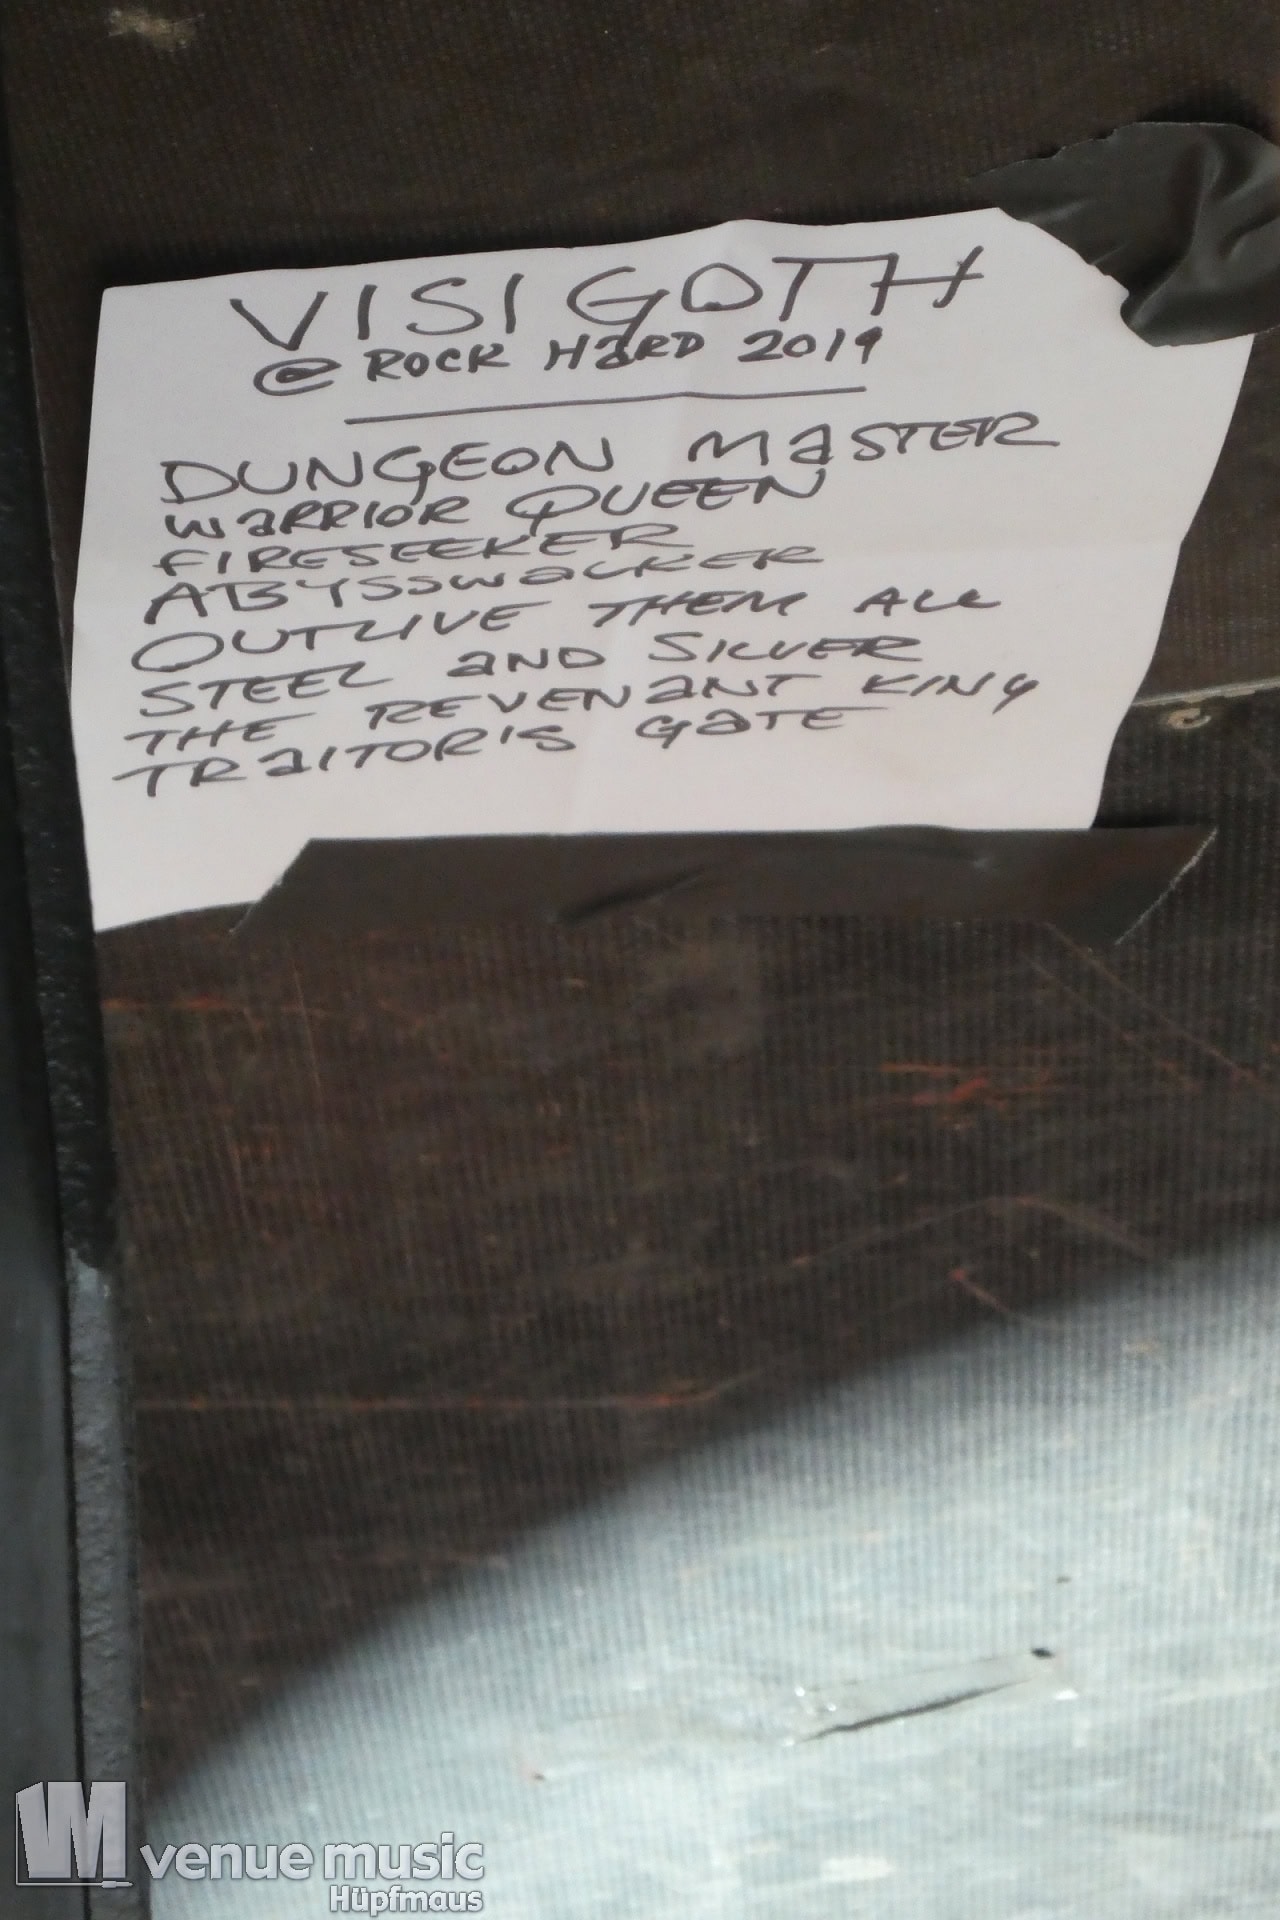 VISIGOTH
@ ROCK HaRD 2019
DUNGEON MaSTER
WaRRIOR QUEEN
FIRESEEKER
ABYSSWaLKER
OUTLIVE THEM ALL
STEEL aND SILVER
THE REVENaNT KING
TRaITOR'S GaTE
VM venue music
Hüpfmaus